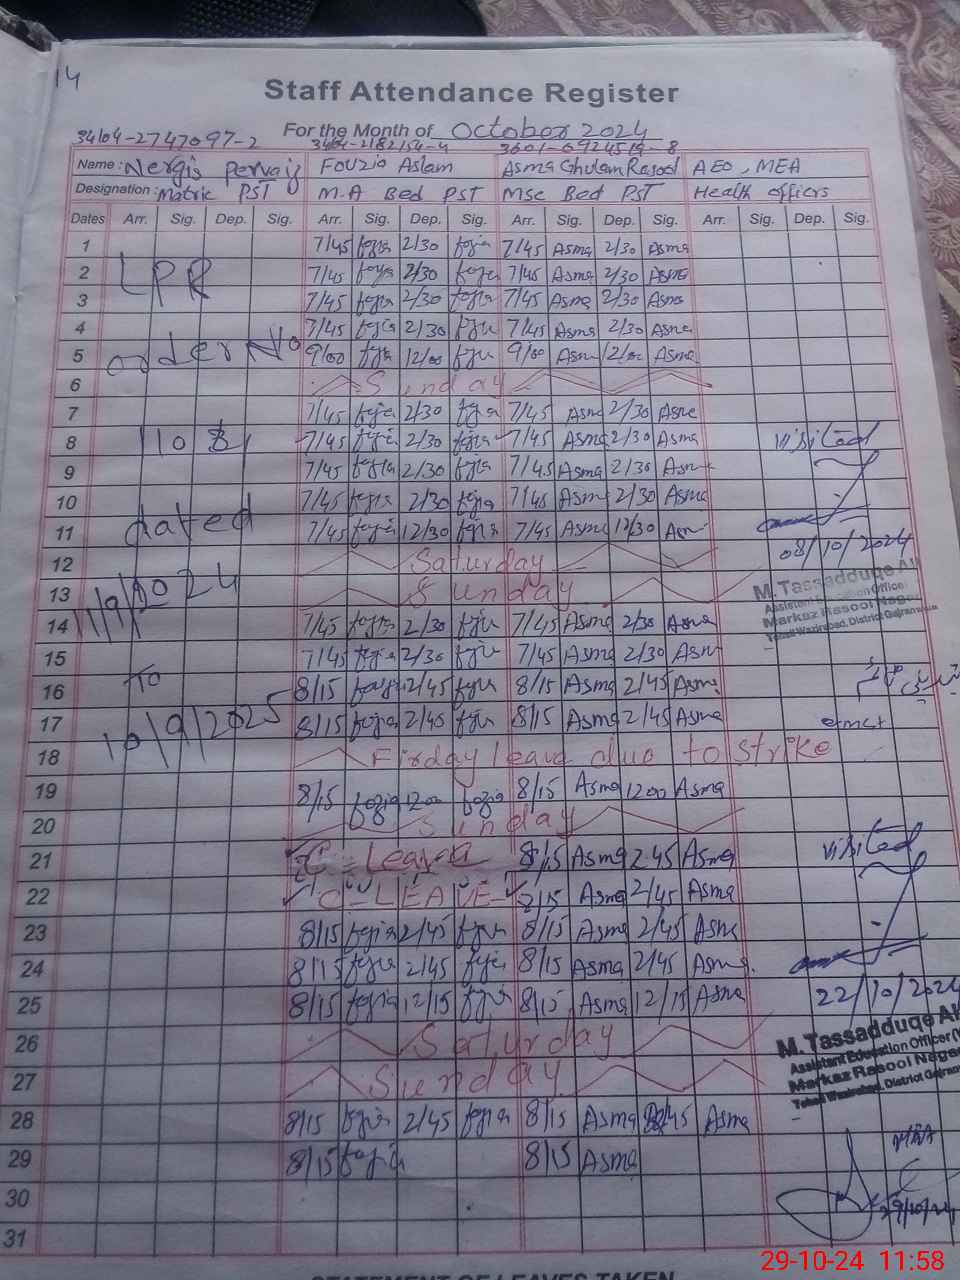 14
Staff Attendance Register
For the Month of October 2024
34104-2747097-2
Name: Nergis Pervaiz Fouzia Aslam Asma Ghulam Rasool AEO, MEA
Designation: Matric PST M.A Bed PST MSc Bed PST Health officers
Dates Arr. Sig. Dep. Sig. Arr. Sig. Dep. Sig. Arr. Sig. Dep. Sig. Arr. Sig. Dep. Sig.
1 7/45 fozia 2/30 fozia 7/45 Asma 2/30 Asma
2 LPR 7/45 fozia 2/30 fozia 7/45 Asma 2/30 Asma
3 7/45 fozia 2/30 fozia 7/45 Asma 2/30 Asma
4 7/45 fozia 2/30 fozia 7/45 Asma 2/30 Asma
5 order No 9/00 fozia 12/00 fozia 9/00 Asma 12/00 Asma
6 Sunday
7 7/45 fozia 2/30 fozia 7/45 Asma 2/30 Asma
8 7/45 fozia 2/30 fozia 7/45 Asma 2/30 Asma visited
9 7/45 fozia 2/30 fozia 7/45 Asma 2/30 Asma
10 7/45 fozia 2/30 fozia 7/45 Asma 2/30 Asma
11 dated 7/45 fozia 12/30 fozia 7/45 Asma 12/30 Asma
12 Saturday 08/10/2024
13 11/9/2024 Sunday M.Tassadduqe Ali
Assistant Education Officer
Markaz Rasool Nagar
Tehsil Wazirabad, District Gujranwala
14 7/45 fozia 2/30 fozia 7/45 Asma 2/30 Asma
15 7/45 fozia 2/30 fozia 7/45 Asma 2/30 Asma
16 To 8/15 fozia 2/45 fozia 8/15 Asma 2/45 Asma
17 10/9/2025 8/15 fozia 2/45 fozia 8/15 Asma 2/45 Asma
18 Firday leave duo to strike
19 8/15 fozia 1200 fozia 8/15 Asma 1200 Asma
20 Sunday
21 C-Leave 8/15 Asma 2.45 Asma visited
22 C-LEAVE 8/15 Asma 2/45 Asma
23 8/15 fozia 2/45 fozia 8/15 Asma 2/45 Asma
24 8/15 fozia 2/45 fozia 8/15 Asma 2/45 Asma
25 8/15 fozia 12/15 fozia 8/15 Asma 12/15 Asma 22/10/2024
26 Saturday M.Tassadduqe Ali
Assistant Education Officer
27 Sunday Markaz Rasool Nagar
Tehsil Wazirabad, District Gujranwala
28 8/15 fozia 2/45 fozia 8/15 Asma 2/45 Asma
29 8/15 fozia 8/15 Asma
30 29/10/24
31
29-10-24 11:58
STATEMENT OF LEAVES TAKEN